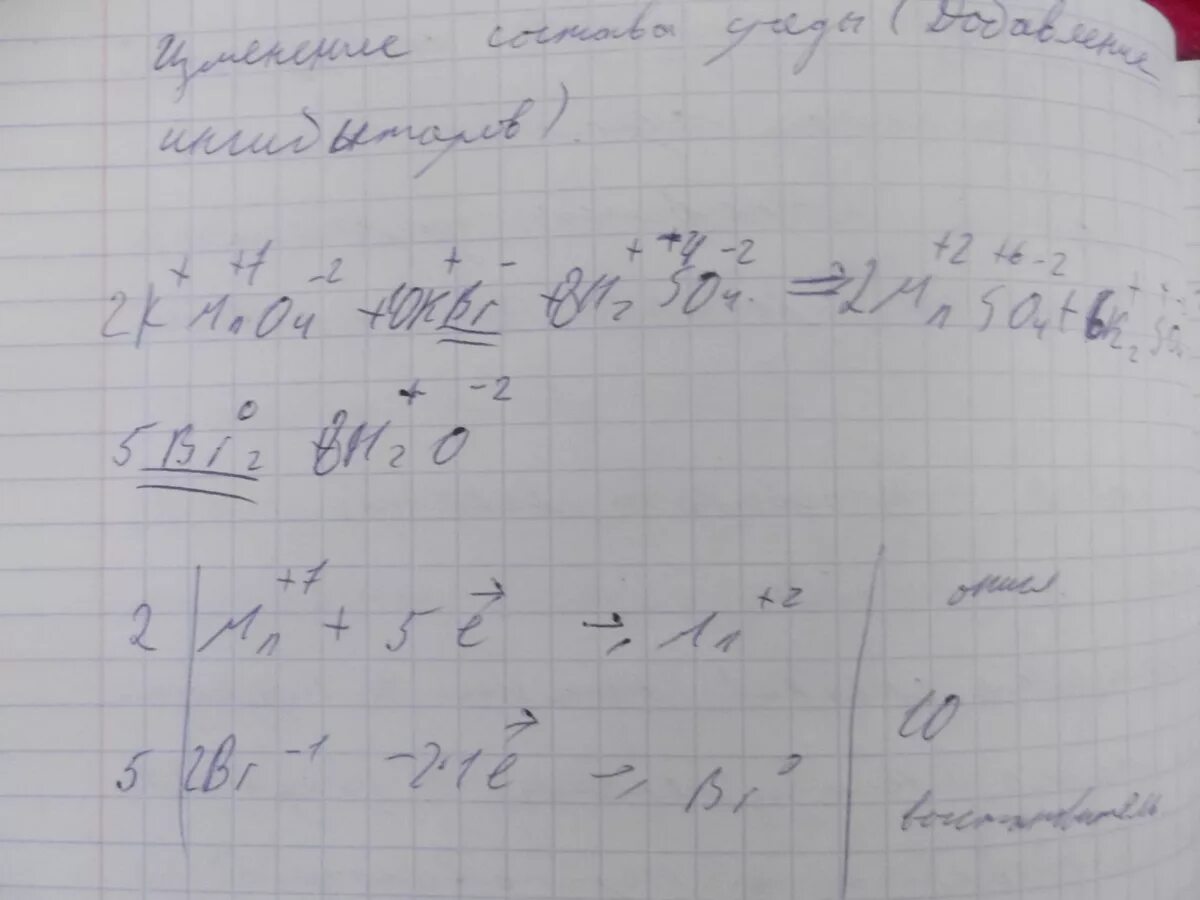 Изменение состава среды (Добавление
ингибыторов).
+ +7 -2 + - + +4 -2 +2 +6 -2 + +
2KMnO4 + 10KBr + 8H2SO4 => 2MnSO4 + 6K2SO4
0 + -2
5Br2 + 8H2O
2 | Mn+7 + 5e → Mn+2 | окисл
10
5 | 2Br-1 -2·1e → Br0 | восстановитель